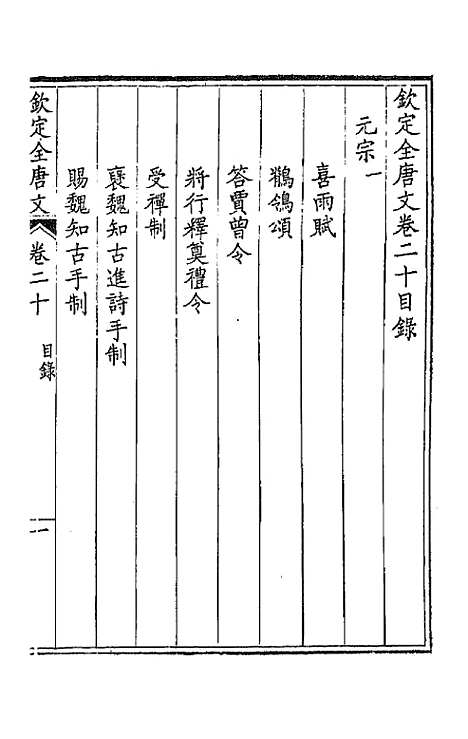 欽定全唐文卷二十目錄
元宗一
喜雨賦
鶺鴒頌
答賈曾令
將行釋奠禮令
受禪制
襃魏知古進詩手制
賜魏知古手制
欽定全唐文 卷二十 目錄 一